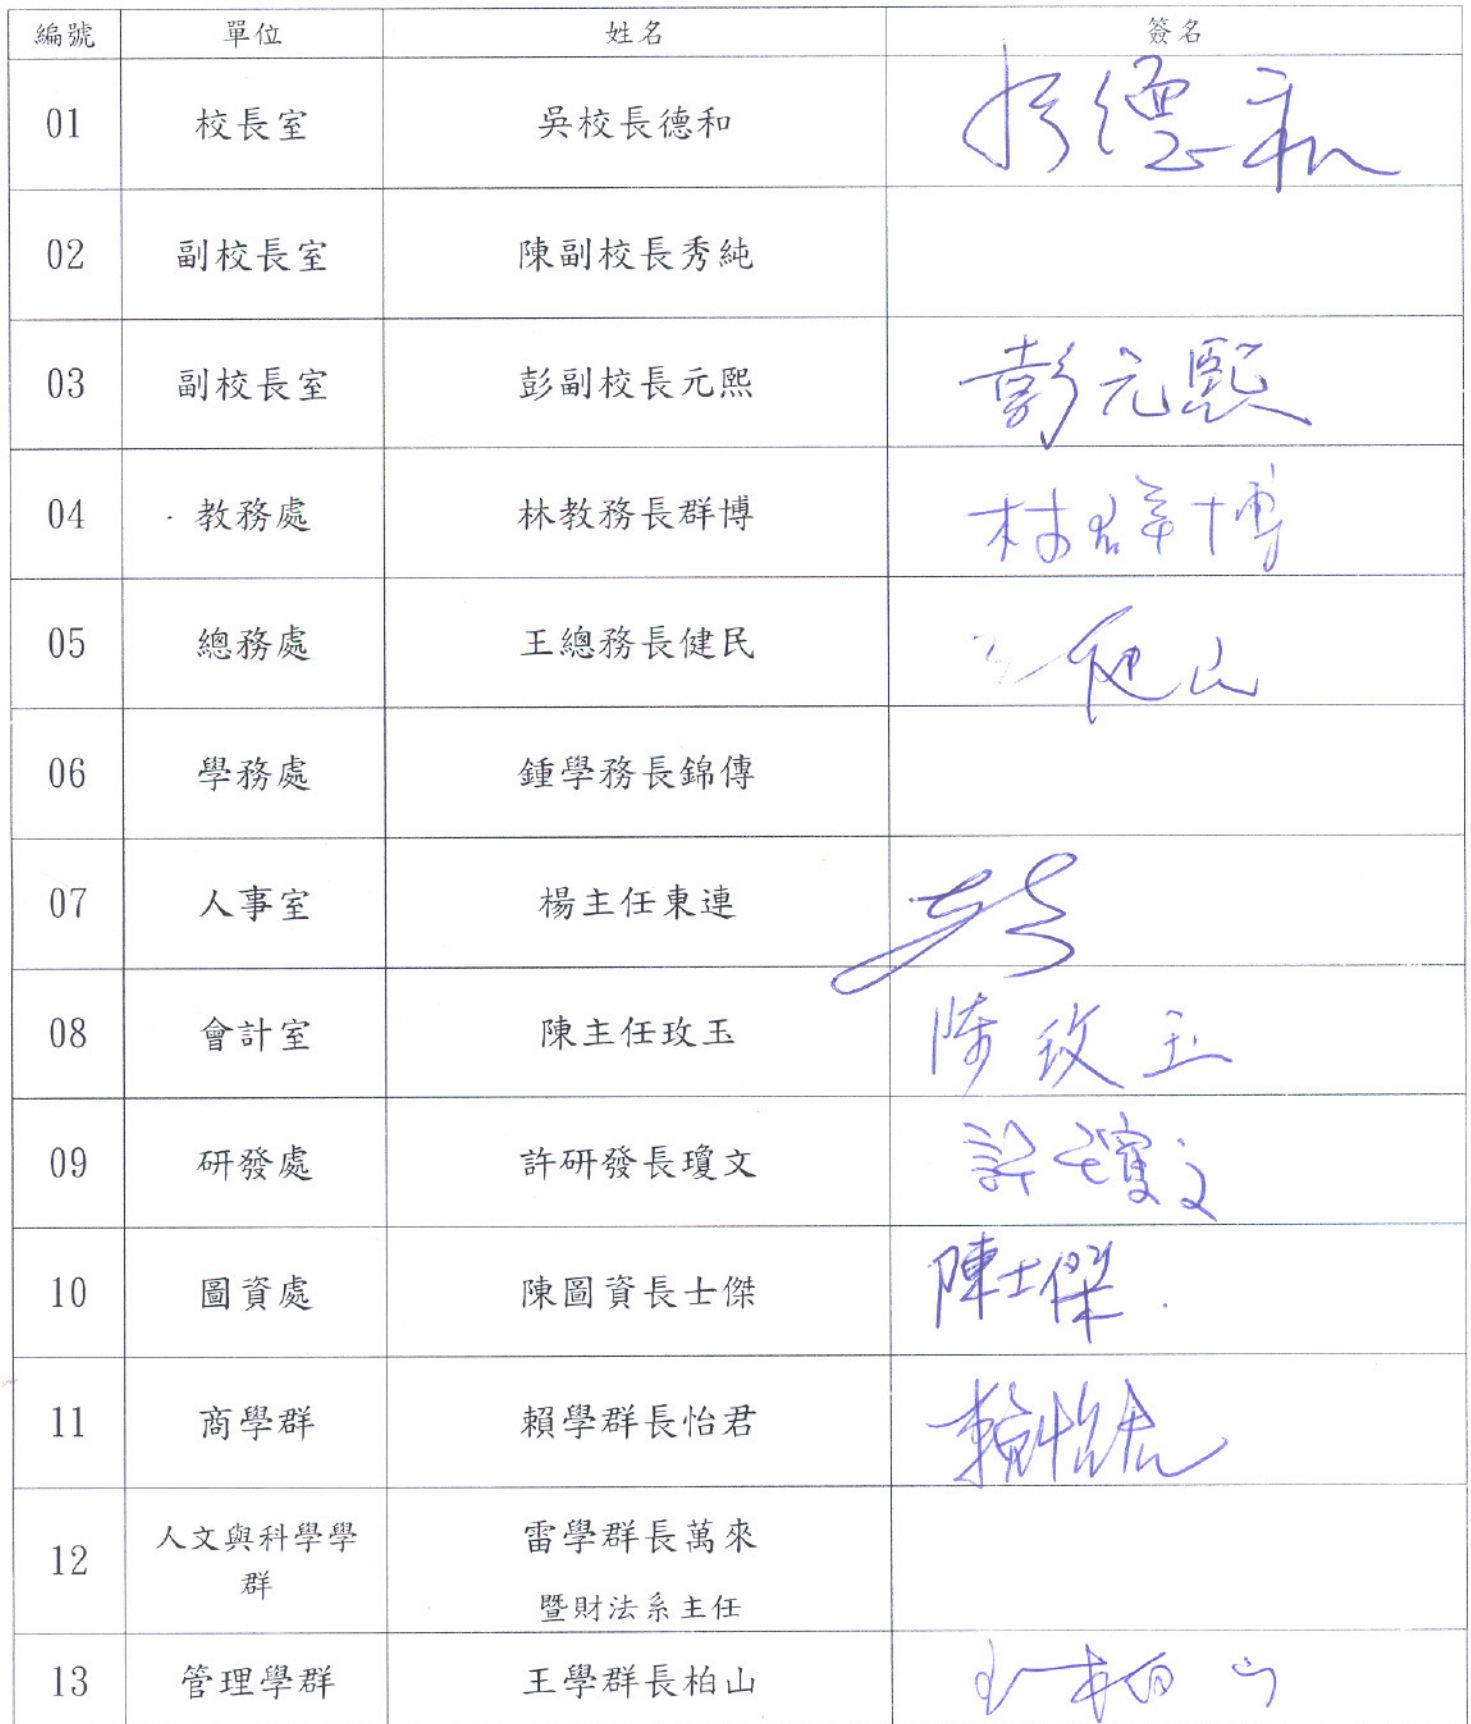 編號 單位 姓名 簽名
01 校長室 吳校長德和 吳德和
02 副校長室 陳副校長秀純
03 副校長室 彭副校長元熙 彭元熙
04 教務處 林教務長群博 林群博
05 總務處 王總務長健民 王健民
06 學務處 鍾學務長錦傳
07 人事室 楊主任東連
08 會計室 陳主任玫玉 陳玫玉
09 研發處 許研發長瓊文 許瓊文
10 圖資處 陳圖資長士傑 陳士傑
11 商學群 賴學群長怡君 賴怡君
12 人文與科學學 雷學群長萬來
群 暨財法系主任
13 管理學群 王學群長柏山 王柏山